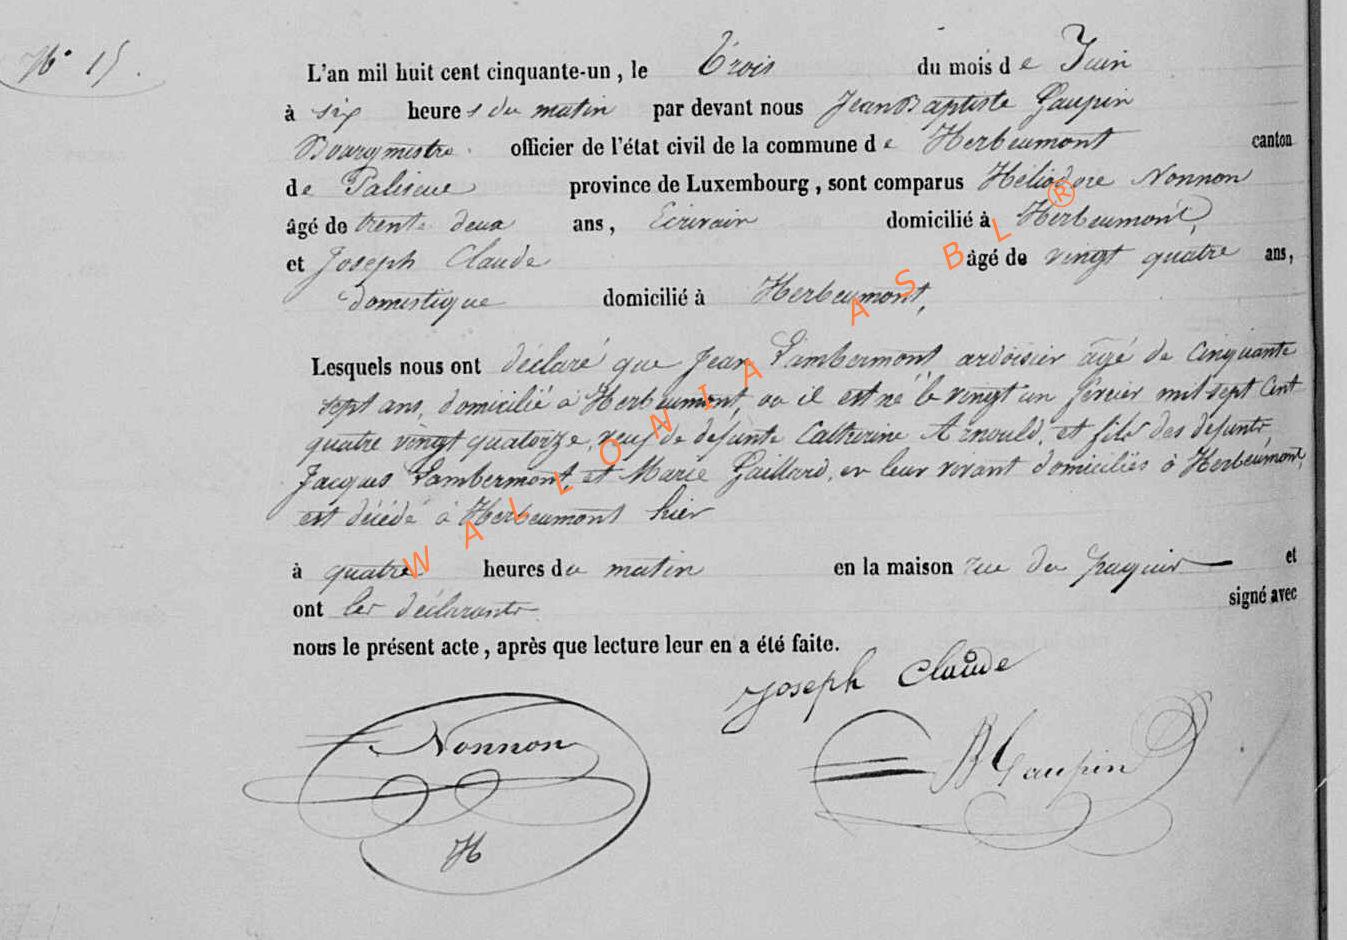 N° 15.
L'an mil huit cent cinquante-un, le Trois du mois de Juin
à six heures du matin par devant nous Jean Baptiste Gaupin
Bourgmestre officier de l'état civil de la commune de Herbeumont canton
de Paliseul province de Luxembourg, sont comparus Héliodore Nonnon
âgé de trente deux ans, Ecrivain domicilié à Herbeumont,
et Joseph Claude âgé de vingt quatre ans,
domestique domicilié à Herbeumont,
Lesquels nous ont déclaré que Jean Lambermont, ardoisier âgé de cinquante
sept ans, domicilié à Herbeumont, où il est né le vingt un février mil sept cent
quatre vingt quatorze, veuf de defunte Catherine Arnould, et fils des defunts
Jacques Lambermont, et Marie Gaillard, en leur vivant domiciliés à Herbeumont,
est décédé à Herbeumont hier
à quatre heures du matin en la maison rue du et
ont les déclarants signé avec
nous le présent acte, après que lecture leur en a été faite.
Joseph Claude
Nonnon
JB Gaupin
H
WALLONIA ASBL ®